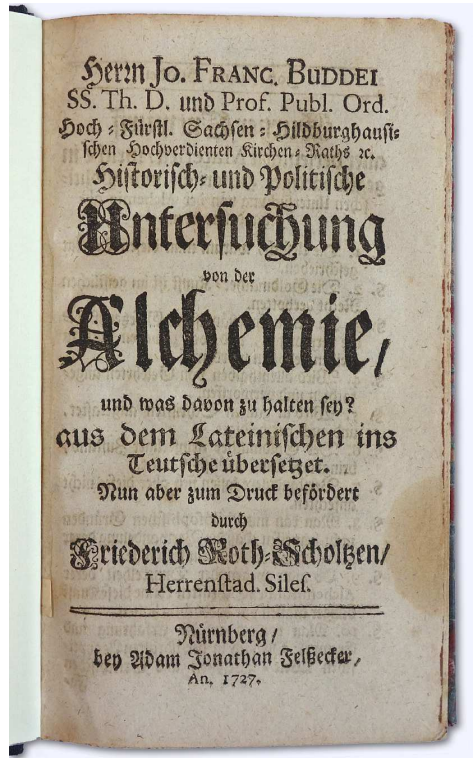 Herrn Jo. Franc. Buddei
SS. Th. D. und Prof. Publ. Ord.
Hoch-Fürstl. Sachsen-Hildburghausi-
schen Hochverdienten Kirchen-Raths ꝛc.
Historisch- und Politische
Untersuchung
von der
Alchemie,
und was davon zu halten sey?
aus dem Lateinischen ins
Teutsche übersetzet.
Nun aber zum Druck befördert
durch
Friederich Roth-Scholtzen/
Herrenstad. Siles.
Nürnberg/
bey Adam Jonathan Felßecker,
An. 1727.